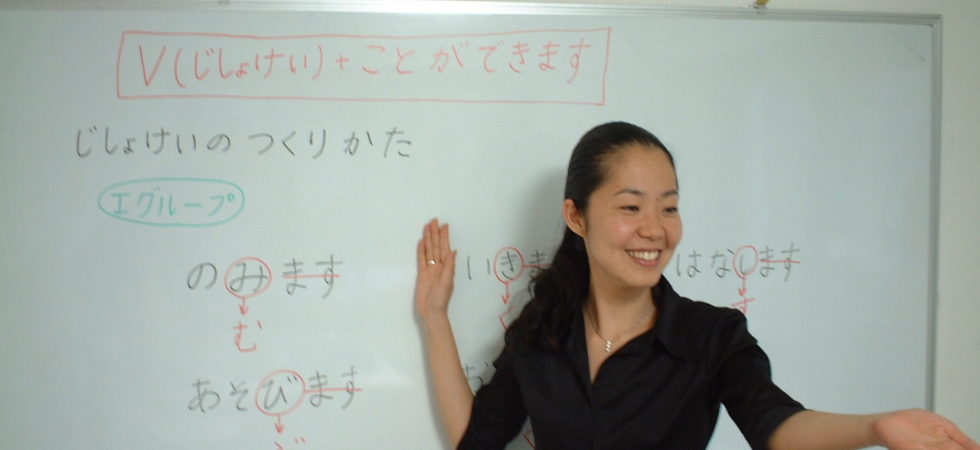 V(じしょけい)+ことができます
じしょけいのつくりかた
Iグループ
のみます いきま はなします
む く す
あそびます